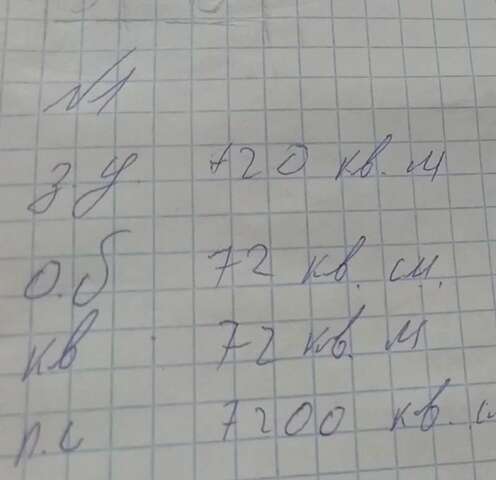 №1
з.у. 720 кв. м
о.б 72 кв. см.
кв 72 кв. м
п.с 7200 кв.